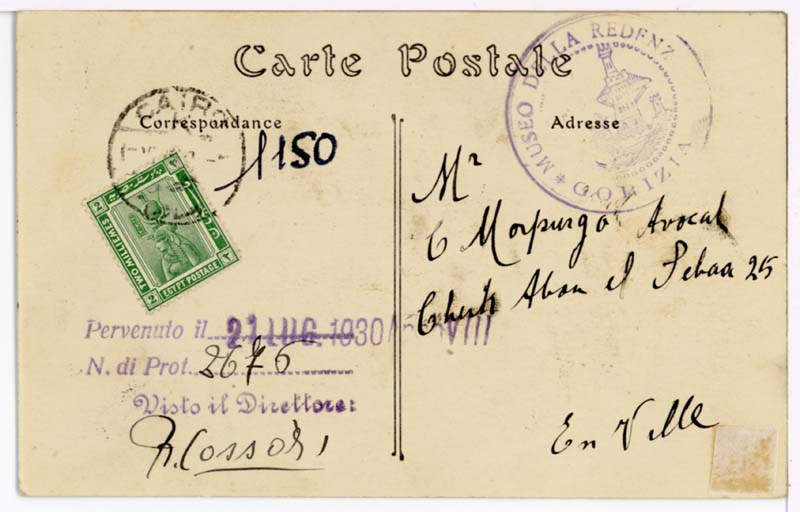 Carte Postale
Correspondance
Adresse
MUSEO DELLA REDENZ
GORIZIA
CAIRO
1150
2
TWO MILLIEMES
2
EGYPT POSTAGE
Mr
Morpurgo Avocat
Cheikh Abou el Sebaa 25
En Ville
Pervenuto il 21 LUG. 1930 VIII
N. di Prot. 2676
Visto il Direttore: